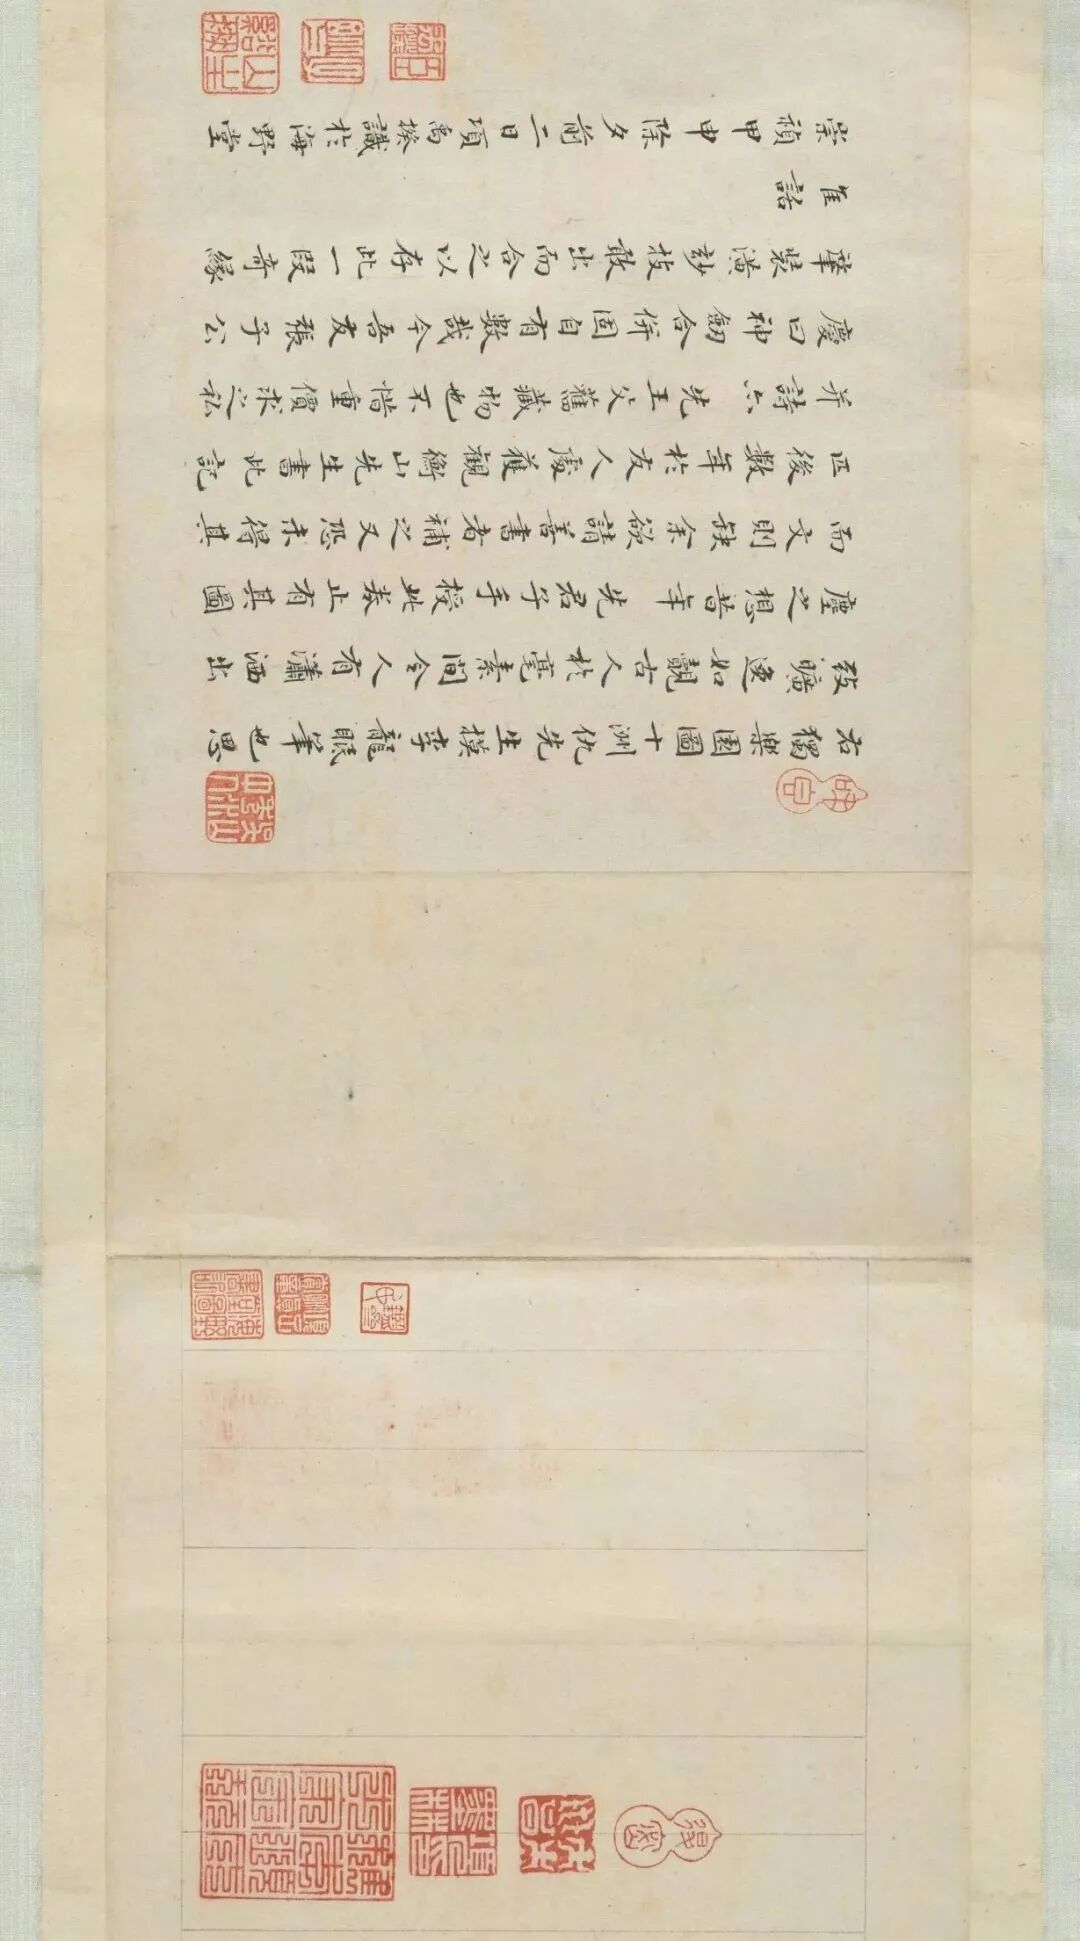 右獨樂園圖十洲仇先生模李龍眠筆也思
致曠逸如覩古人於毫素間令人有瀟洒出
塵之想昔年先君子手授此卷止有其圖
而文則缺余欲請善書者補之又恐未得其
匹後數年於友人處獲觀衡山先生書此記
并詩亦先王父舊藏物也不惜重價求之私
慶曰神劒合併固自有數哉今吾友張子公
肇裝潢妙技敢出而合之以存此一段奇緣
佳話
崇禎甲申除夕前二日項禹揆識於海野堂